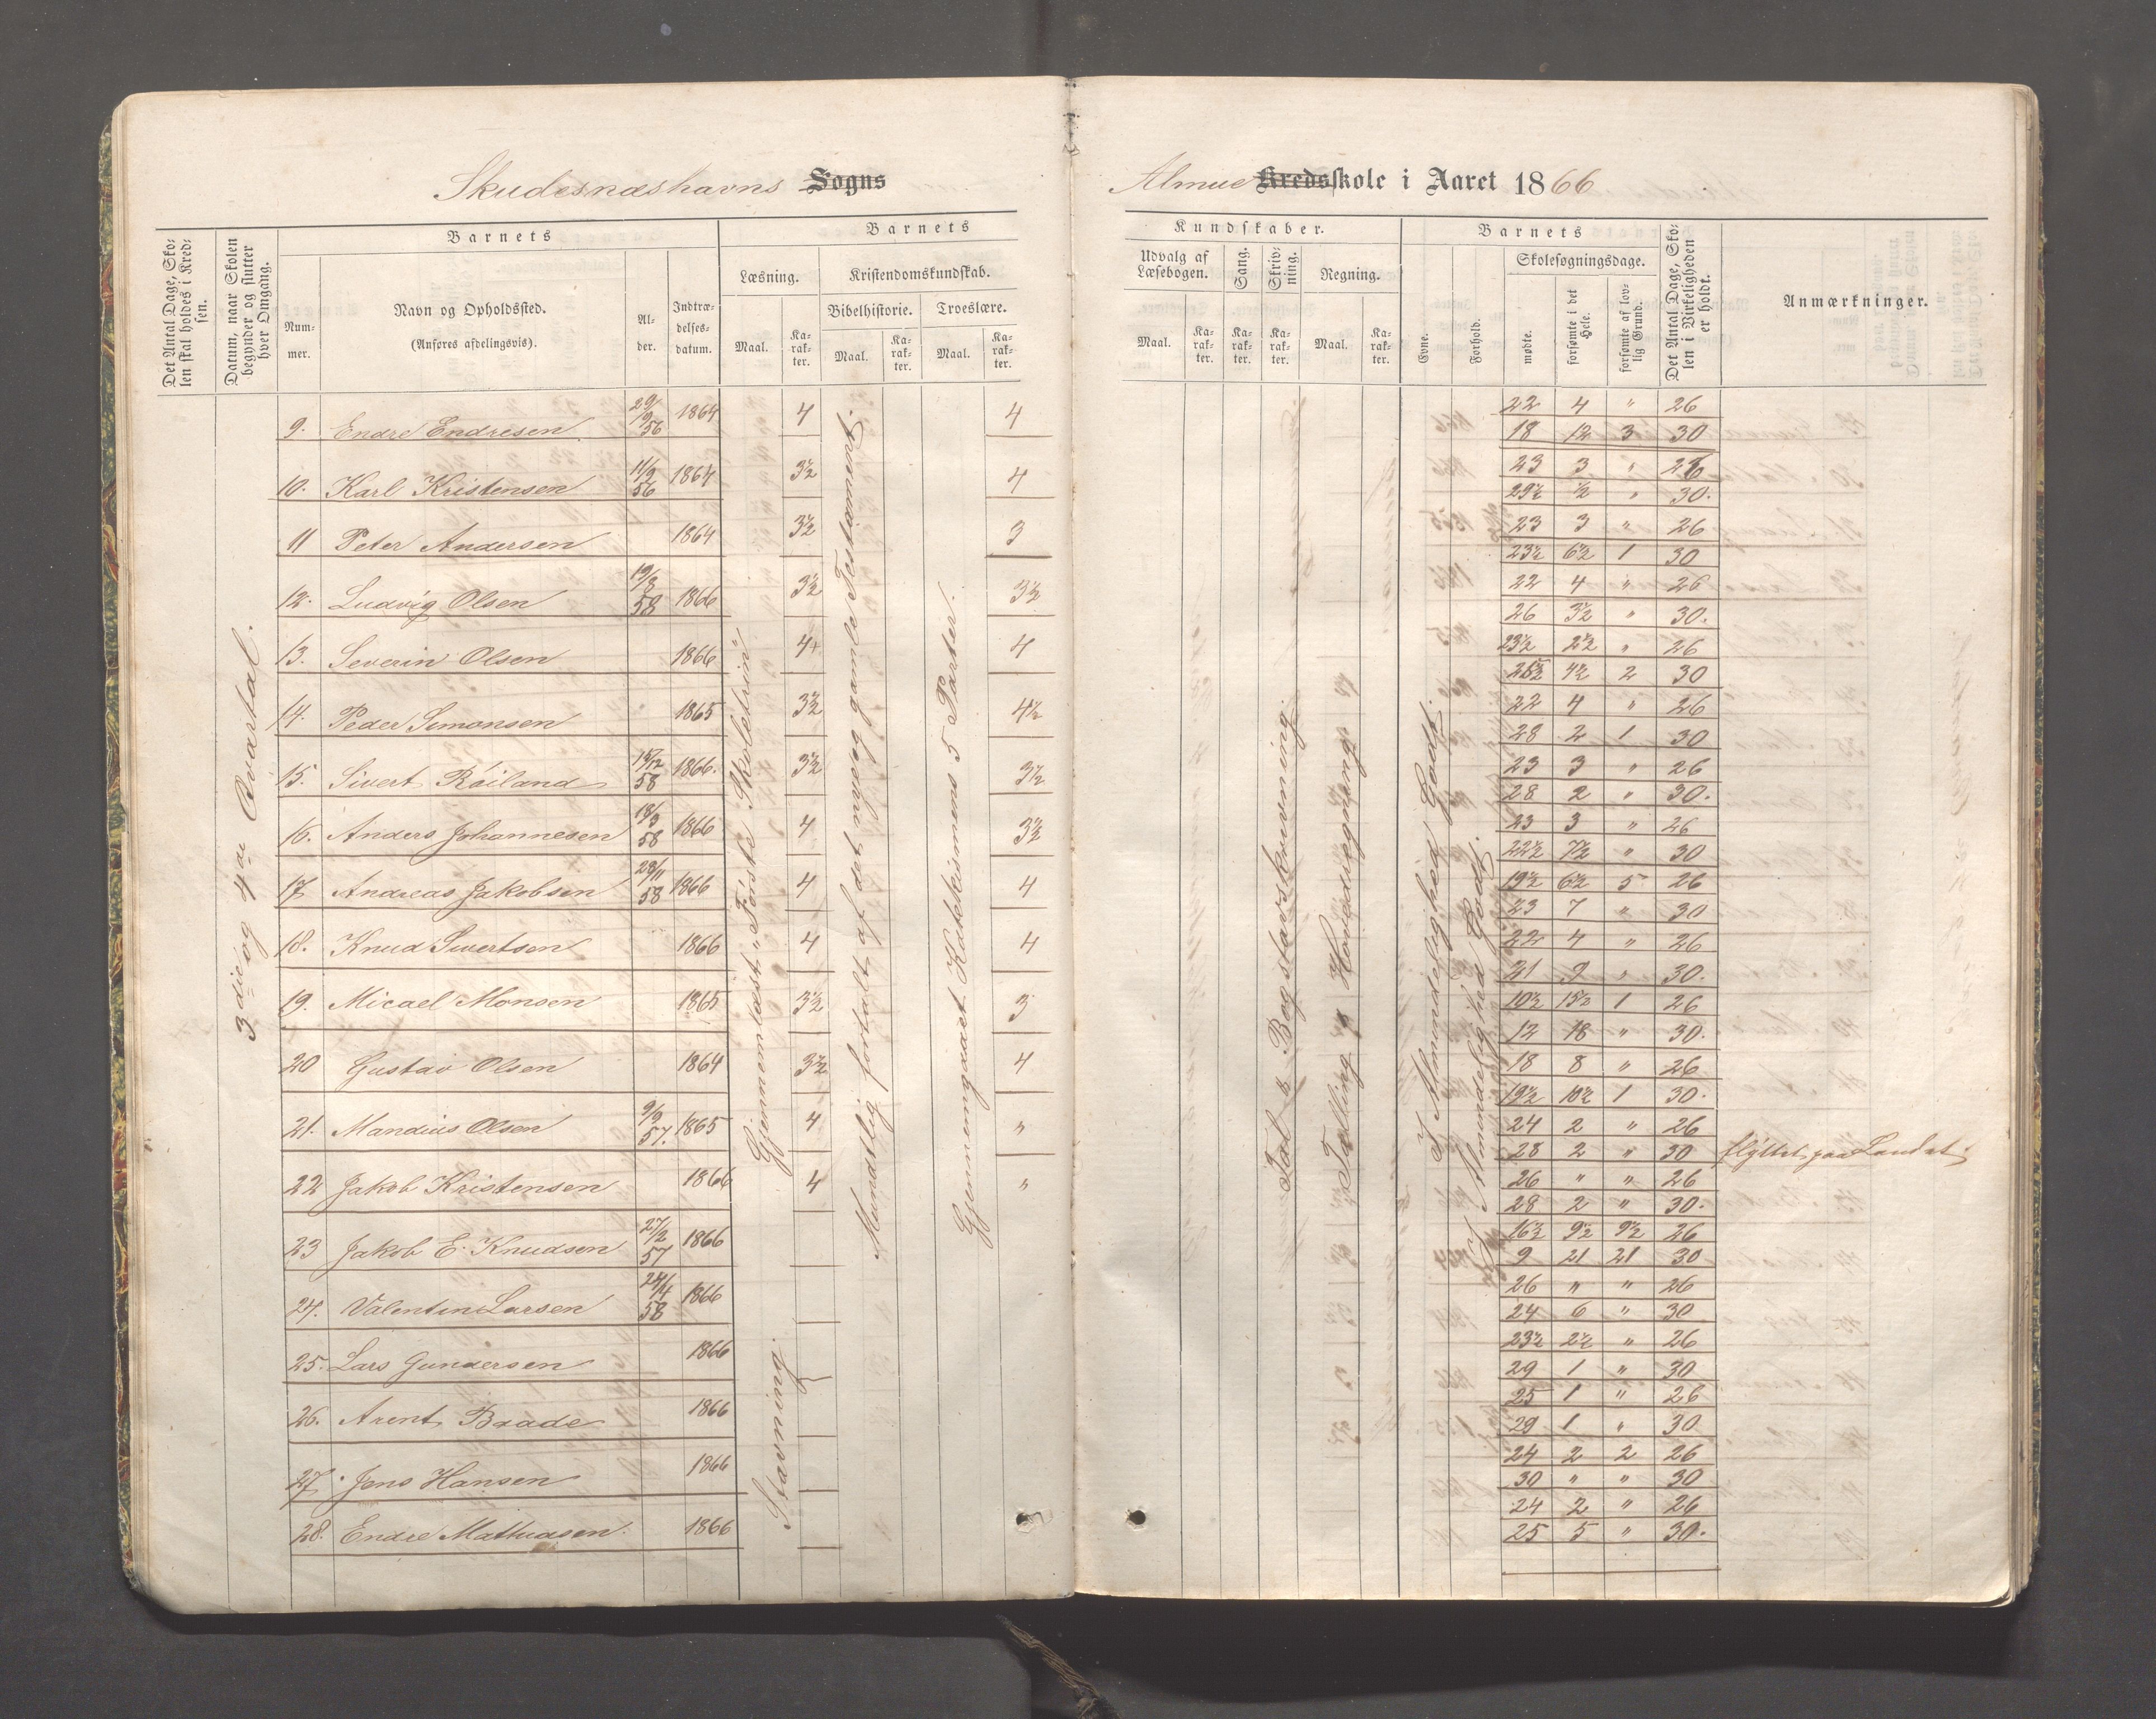 Skudesnæshavns Sogns
Almue Kredsskole i Aaret 1866
Det Antal Dage, Skolen skal holdes i Kredsen.
Datum, naar Skolen begynder og slutter hver Omgang.
Barnets
Nummer.
Navn og Opholdssted.
(Anføres afdelingsvis).
Alder.
Indtrædelsesdatum.
Barnets
Læsning.
Maal.
Karakter.
Kristendomskundskab.
Bibelhistorie.
Maal.
Karakter.
Troeslære.
Maal.
Karakter.
3die og 4de Qvartal.
9. Endre Endresen 29/9 56 1864 4 4
10. Karl Kristensen 11/2 56 1864 3½ 4
11 Peter Andersen 1864 3½ 3
12. Ludvig Olsen 19/8 58 1866 3½ 3½
13. Severin Olsen 1866 4+ 4
14. Peder Simonsen 1865 3½ 4½
15. Sivert Røiland 15/12 58 1866. 3½ 3½
16. Anders Johannesen 18/9 58 1866 4 3½
17 Andreas Jakobsen 28/11 58 1866 4 4
18. Knud Sivertsen 1866 4 4
19. Micael Monsen 1865 3½ 3
20 Gustav Olsen 1864 3½ 4
21. Mandius Olsen 9/9 57. 1865 4 "
22 Jakob Kristensen 1866 4 "
23 Jakob E. Knudsen 27/2 57 1866
24. Valentin Larsen 24/4 58 1866
25. Lars Gundersen 1866
26. Arent Brade 1866
27. Jens Hansen 1866
28. Endre Mathiasen. 1866
Gjennemlæst „Første Skoletrin"
Stavning.
Mundtlig fortalt af det nye og gamle Testamente.
Gjennemgaaet Katekismens 5 Parter.
Kundskaber.
Udvalg af Læsebogen.
Maal.
Karakter.
Sang.
Karakter.
Skrivning.
Karakter.
Regning.
Maal.
Karakter.
Barnets
Evne.
Forhold.
Skolesøgningsdage.
mødte.
forsømte i det Hele.
forsømte af lovlig Grund.
Det Antal Dage, Skolen i Virkeligheden er holdt.
Anmærkninger.
Bogstavskrivning.
Tælling
Hovedregning
I Almindelighed Godt.
I Almindelighed Godt.
22 4 " 26
18 12 3 30
23 3 " 26
29½ ½ " 30.
23 3 " 26
23½ 6½ 1 30
22 4 " 26
26 3½ " 30.
23½ 2½ " 26
25½ 4½ 2 30
22 4 " 26
28 2 1 30
23 3 " 26
28 2 " 30.
23 3 " 26
22½ 7½ " 30
19½ 6½ 5 26
23 7 " 30
22 4 " 26
21 9 " 30.
10½ 15½ 1 26
12 18 " 30.
18 8 " 26
19½ 10½ 1 30.
24 2 " 26
28 2 " 30 flyttet paa Landet.
26 " " 26
28 2 " 30.
16½ 9½ 9½ 26
9 21 21 30
26 " " 26
24 6 " 30
23½ 2½ " 26
29 1 " 30
25 1 " 26
29 1 " 30
24 2 2 26
30 " " 30
24 2 " 26
25 5 " 30.